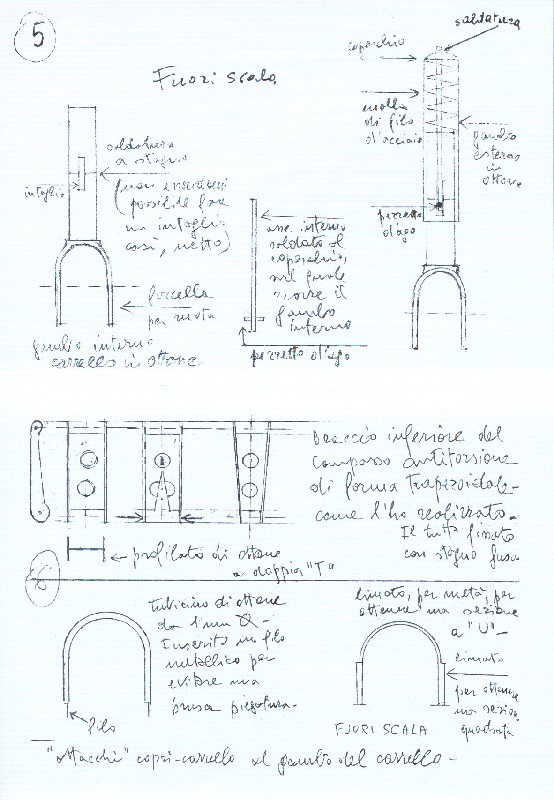 5
Fuori scala
saldatura
coperchio
molla
di filo
d'acciaio
gambo
esterno
in
ottone
pezzetto
d'ago
saldatura
a stagno
intaglio
(fuori
possibile fare
un intaglio
così, netto)
forcella
per ruota
gambo interno
carrello in ottone
asse interno
saldato al
coperchio,
sul quale
scorre il
gambo
interno
pezzetto d'ago
braccio inferiore del
compasso antitorsione
di forma trapezoidale-
come l'ho realizzato-
Il tutto fissato
con stagno fuso
profilato di ottone
a doppia "T"
6
tubicino di ottone
da 1 mm Ø-
Inserito un filo
metallico per
evitare una
brusca piegatura-
filo
limato, per metà, per
ottenere una sezione
a "U"-
limato
per ottenere
una sezione
quadrata
FUORI SCALA
"attacchi" copri-carrello al gambo del carrello-